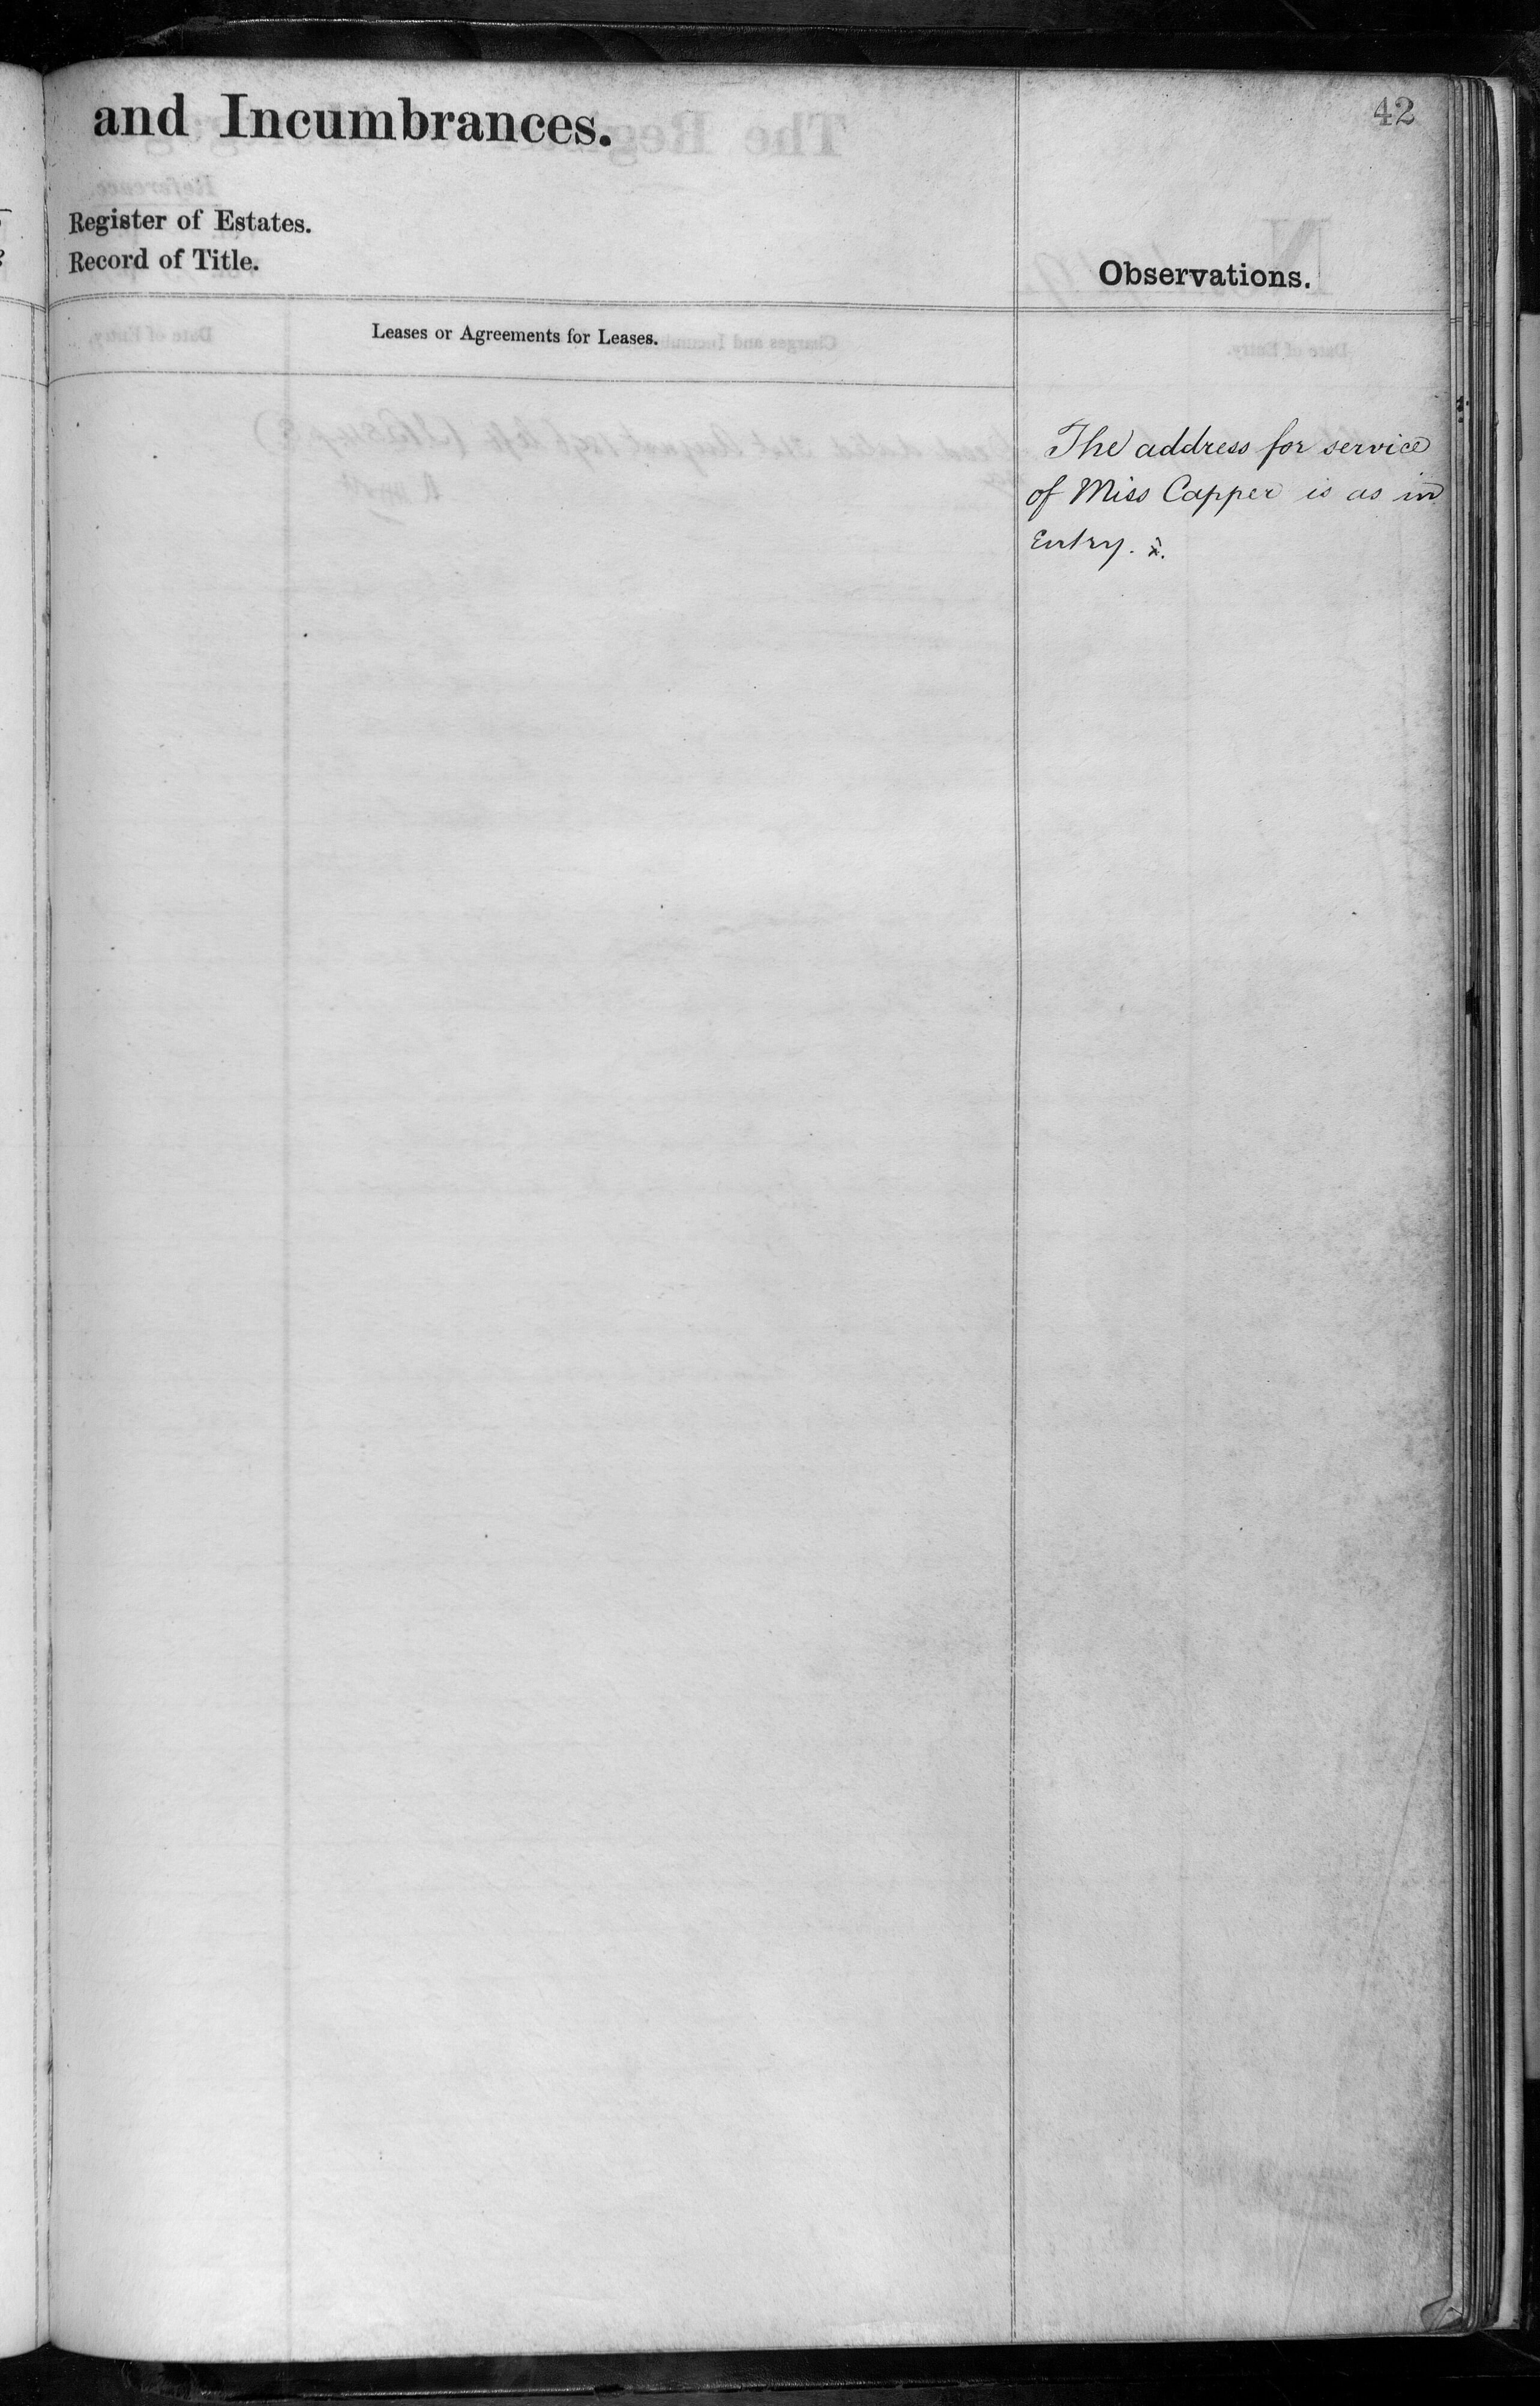 and Incumbrances.
42
Register of Estates.
Record of Title.
Observations.
Leases or Agreements for Leases.
The address for service
of Miss Capper is as in
Entry.